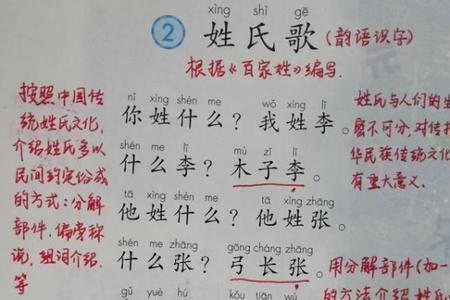 xìng shì gē
② 姓氏歌(韵语识字)
根据《百家姓》编写.
按照中国传
统姓氏文化,
介绍姓氏多以
民间约定俗成
的方式:分解
部件,偏旁称
说,组词介绍.
等
nǐ xìng shén me wǒ xìng lǐ
你姓什么?我姓李。
shén me lǐ mù zǐ lǐ
什么李?木子李。
tā xìng shén me tā xìng zhāng
他姓什么?他姓张。
shén me zhāng gōng cháng zhāng
什么张?弓长张。
gǔ yuè hú kǒu tiān wú
姓氏与人们的生
易不可分,对传
华民族传统文化
有重大意义.
用分解部件(如一
的方法介绍姓